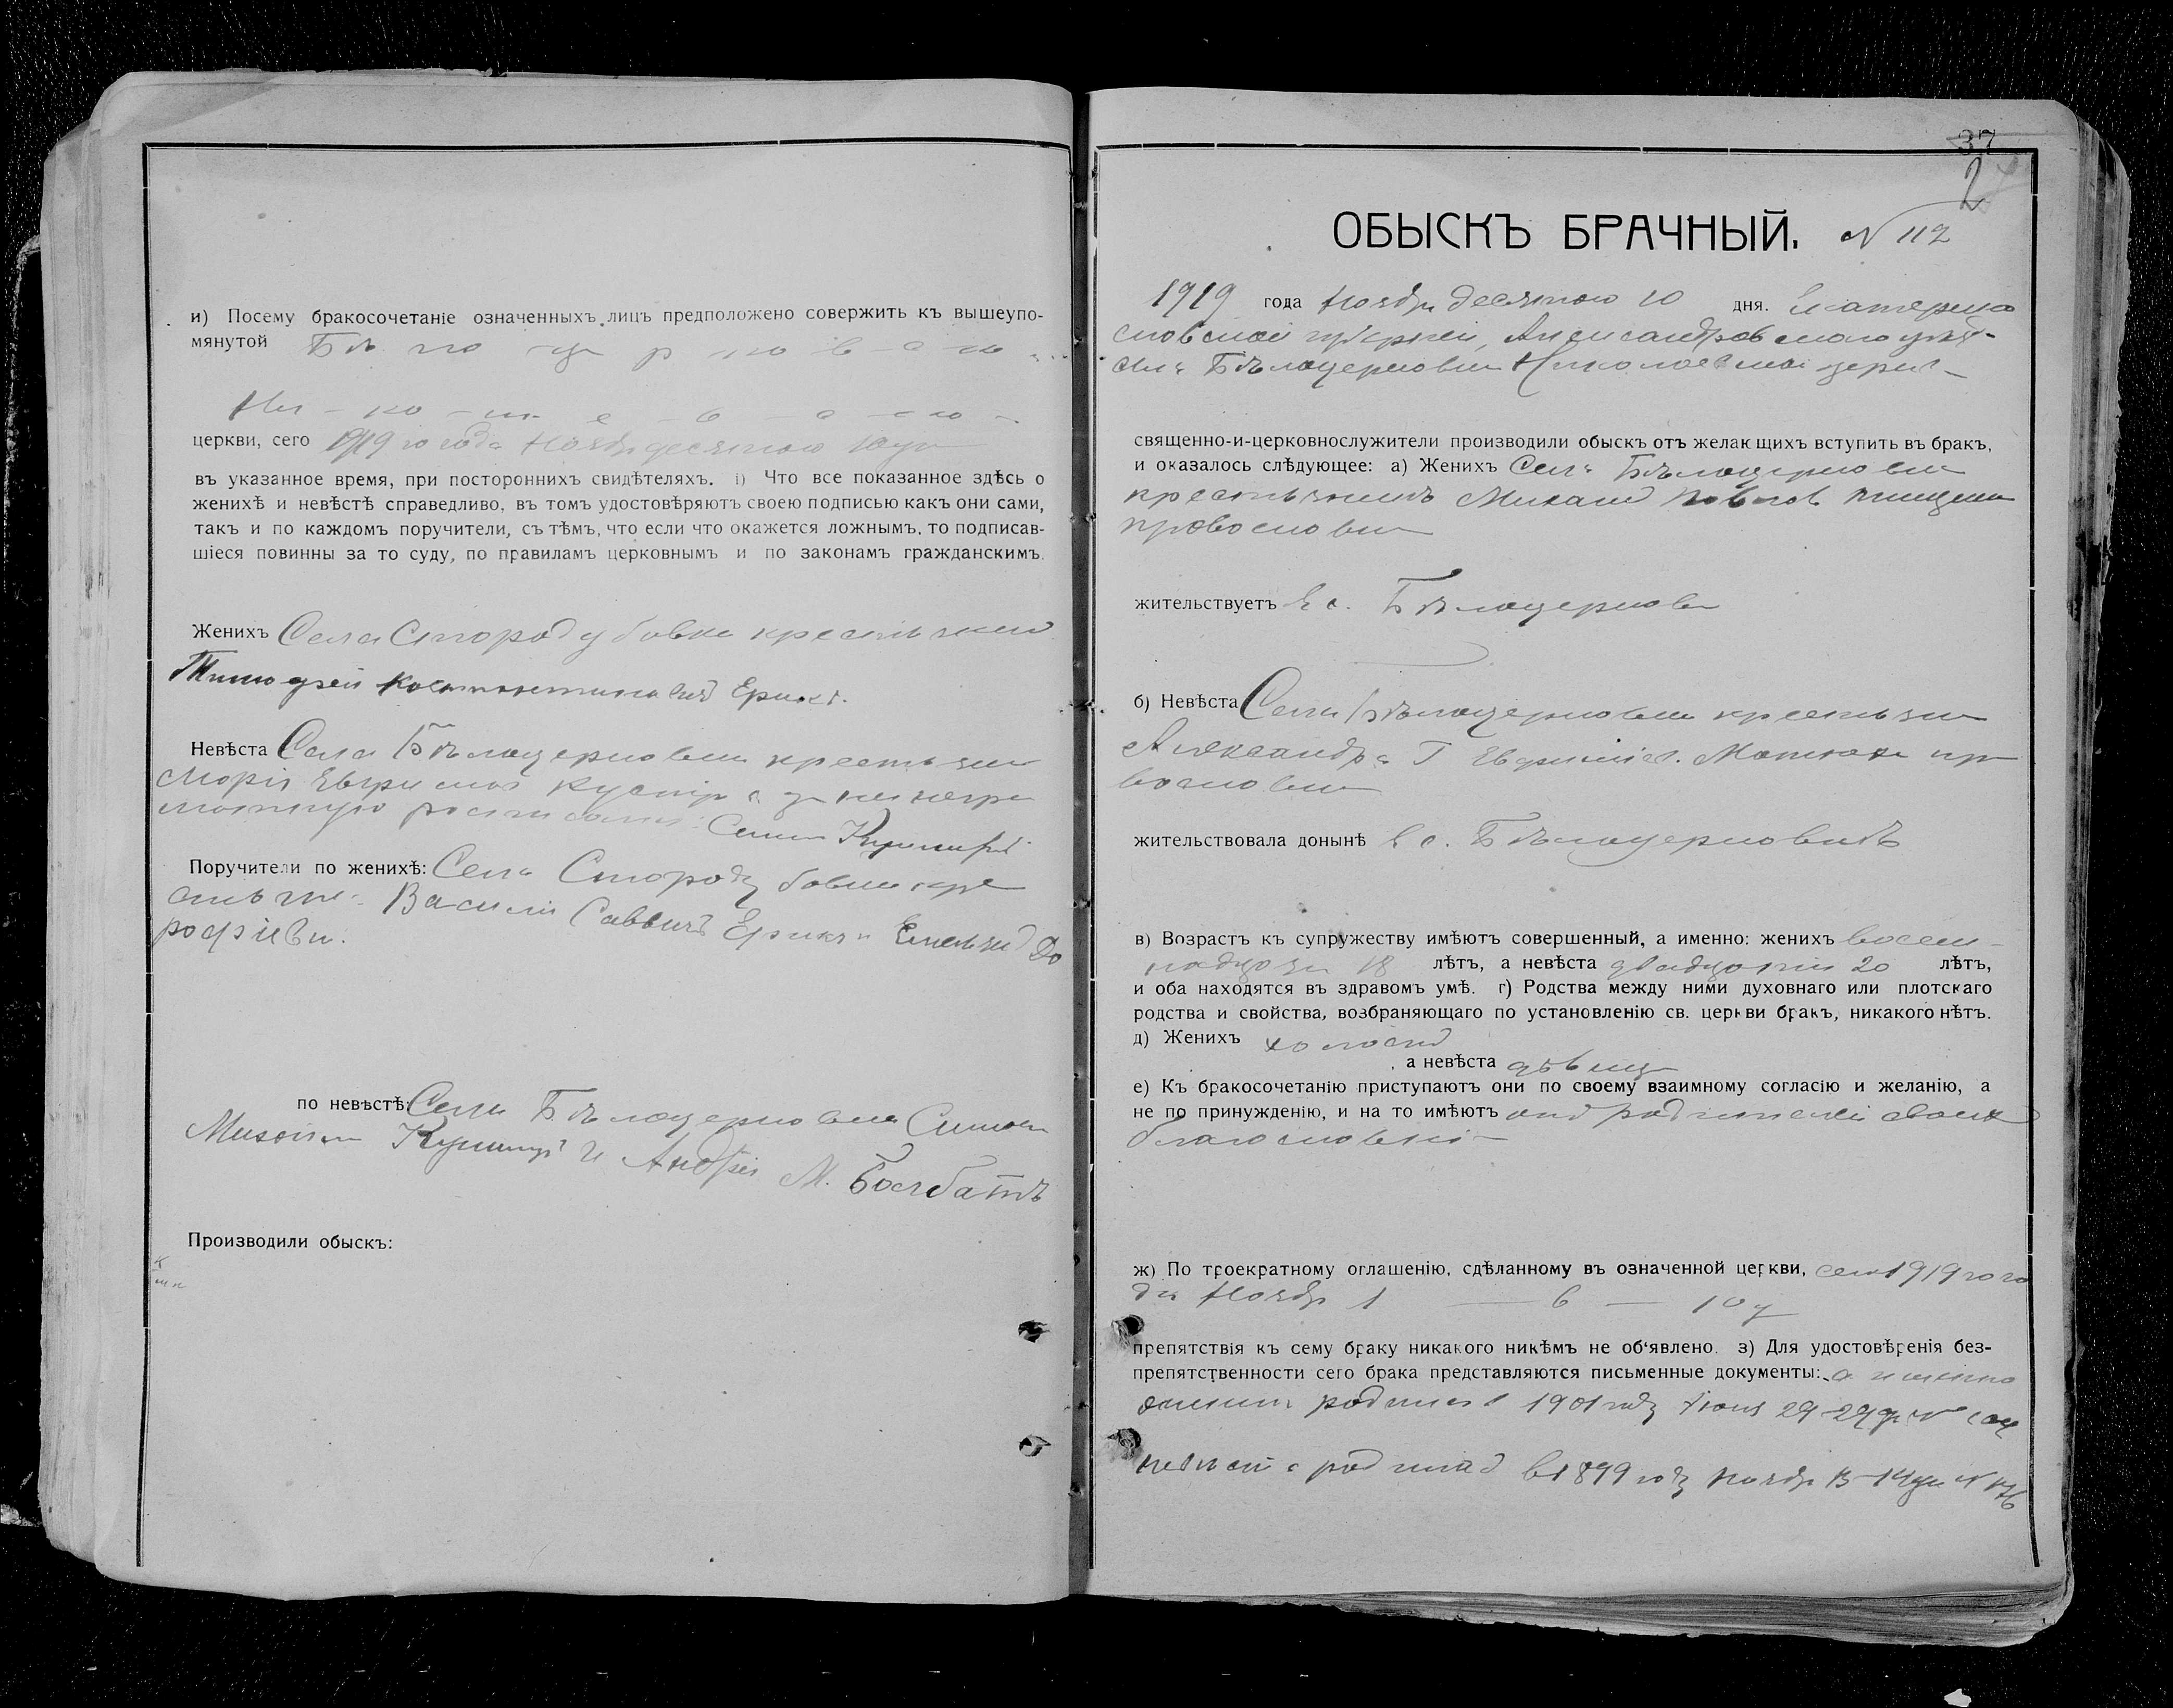 и) Посему бракосочетаніе означенныхъ лицъ предположено совержить къ вышеупо-
мянутой Бѣ ло це р ко в с ко
Ни - ко - ла е - в - с - ко -
церкви, сего 1919 го года Ноябр десятого 10 дн
въ указанное время, при постороннихъ свидѣтеляхъ. і) Что все показанное здѣсь о
женихѣ и невѣстѣ справедливо, въ томъ удостовѣряютъ своею подписью какъ они сами,
такъ и по каждомъ поручители, съ тѣмъ, что если что окажется ложнымъ, то подписав-
шіеся повинны за то суду, по правиламъ церковнымъ и по законамъ гражданскимъ.
Женихъ Села Стородубовки крестьянин
Тимофей Костонтиновичъ
Невѣста Села Бѣлоцерковки крестьян
Марія за неграмотную
Семен Кушнир
Поручители по женихѣ: Села Стородубовки кре
Васили Саввичъ
по невѣстѣ: Села Бѣлоцерковки Симеон
и Андрей М. Болбатъ
Производили обыскъ:
37
2
ОБЫСКЪ БРАЧНЫЙ. N 112
1919 года Ноября десятого 10 дня. Екатерино
славской губерніи, Александровского уѣзд-
села Бѣлоцерковки Николаевской церкв-
священно-и-церковнослужители производили обыскъ отъ желающихъ вступить въ бракъ,
и оказалось слѣдующее: а) Женихъ Села Бѣлоцерковки
крестьянинъ Михаил
православн
жительствуетъ в с. Бѣлоцерковк
б) Невѣста Села Бѣлоцерковки крестьян
Александра Г пра
вославн
жительствовала донынѣ в с. Бѣлоцерковкѣ
в) Возрастъ къ супружеству имѣютъ совершенный, а именно: женихъ восем-
надцать 18 лѣтъ, а невѣста двадцати 20 лѣтъ,
и оба находятся въ здравомъ умѣ. г) Родства между ними духовнаго или плотскаго
родства и свойства, возбраняющаго по установленію св. церкви бракъ, никакого нѣтъ.
д) Женихъ холост
, а невѣста дѣвица
е) Къ бракосочетанію приступаютъ они по своему взаимному согласію и желанію, а
не по принужденію, и на то имѣютъ от родителей своих
благословені
ж) По троекратному оглашенію, сдѣланному въ означенной церкви, сего 1919 го го
да Ноябр 1 — 6 — 10 ч
препятствія къ сему браку никакого никѣмъ не об'явлено. з) Для удостовѣренія без-
препятственности сего брака представляются письменные документы: а именно
родился 1901 году Июня 29-29 N
невѣста род в 1899 году Ноябр 13-14